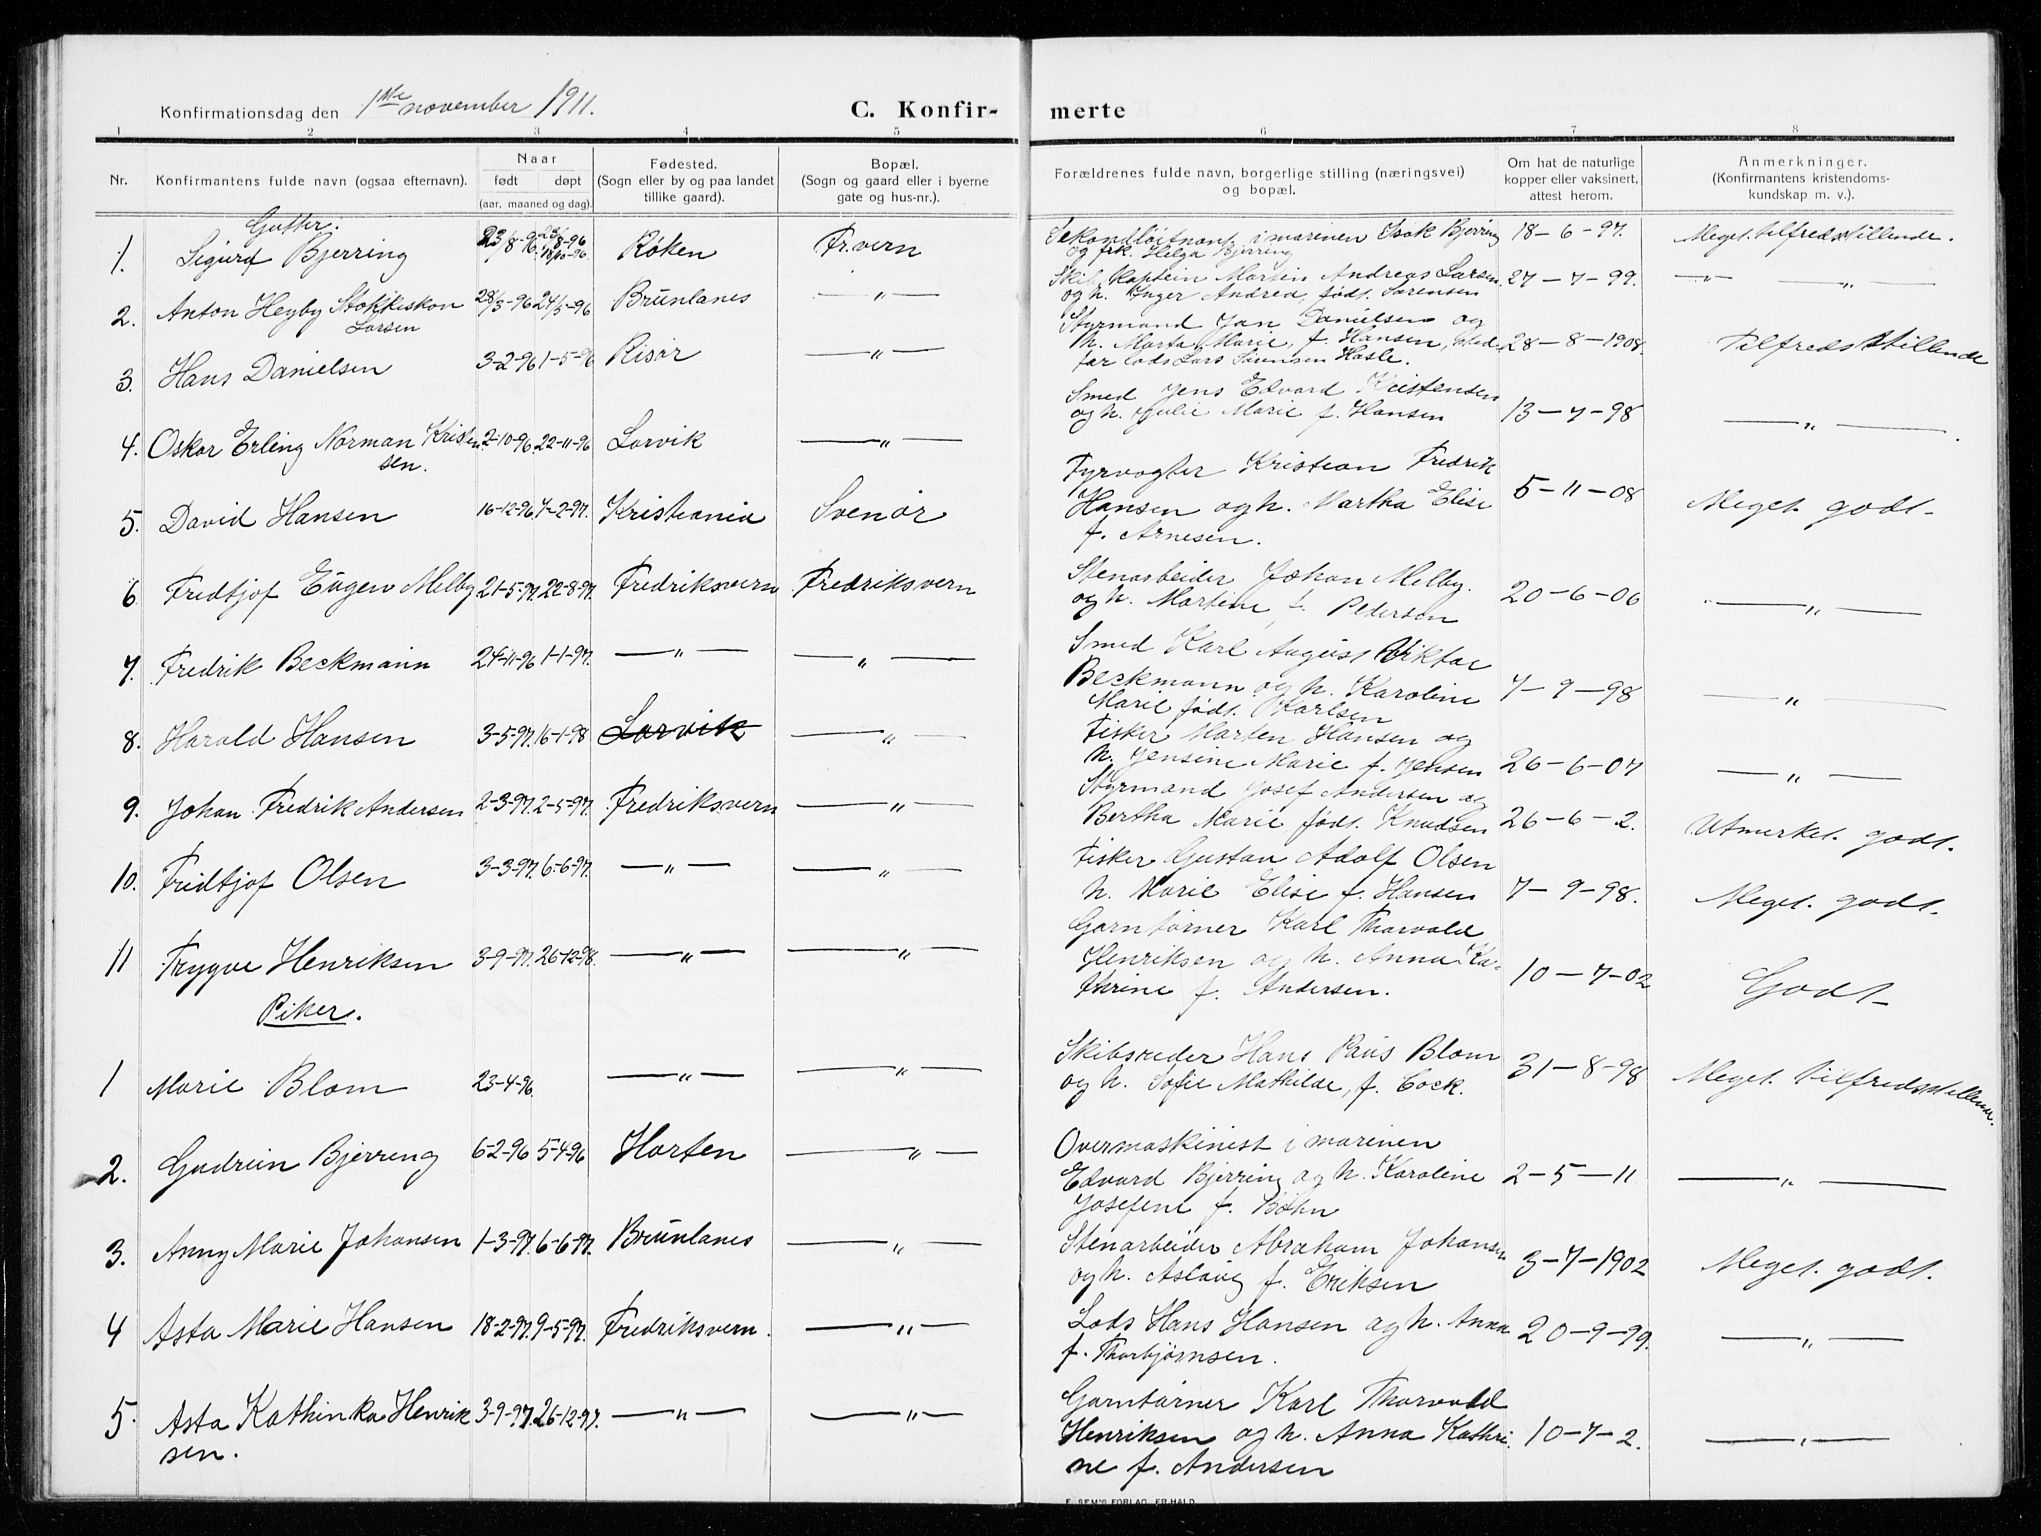 Konfirmationsdag den 1ste november 1911.
C. Konfir- merte
1 2 3 4 5 6 7 8
Nr. Konfirmantens fulde navn (ogsaa efternavn). Naar født døpt (aar, maaned og dag). Fødested. (Sogn eller by og paa landet tillike gaard). Bopæl. (Sogn og gaard eller i byerne gate og hus-nr.). Forældrenes fulde navn, borgerlige stilling (næringsvei) og bopæl. Om hat de naturlige kopper eller vaksinert, attest herom. Anmerkninger. (Konfirmantens kristendoms- kundskap m. v.).
Gutter.
1. Sigurd Bjerring 23/8-96 Røken Fr.vern Sekondløitnant i marinen Isak Bjerring 18-6-97. Meget tilfredsstillende.
og frk. Helga Bjerring
2. Anton Heyby Stokkeskon 28/3-96 24/5-96 Brunlanes —"— Skibskaptein Martin Andreas Larsen 27-7-99. —"—
Larsen
og h. Inger Andrea, født Sørensen
3. Hans Danielsen 3-2-96 1-5-96 Risør —"— Styrmand Jan Danielsen og
h. Marta Marie, f. Hansen, 28-8-1908. Tilfredsstillende
far lods Lars Sørensen Hasle.
4. Oskar Erling Norman Kristen 2-10-96 22-11-96 Larvik —"— Smed Jens Edvard Kristensen
sen.
og h. Julie Marie f. Hansen 13-7-98 —"—.
5. David Hansen 16-12-96 7-2-97. Kristiania Svenør Fyrvogter Kristian Fredrik
Hansen og h. Martha Elise 5-11-08 Meget godt
f. Arnesen.
6 Fredtjof Eugen Melby 21-5-97. 22-8-97. Fredriksvern Fredriksvern Stenarbeider Johan Melby.
og h. Martine, f. Pedersen 20-6-06 —"—
7. Fredrik Beckmann 24-11-96 1-1-97. —"— —"— Smed Karl August Viktor
Beckmann og h. Karoline 7-9-98 —"—
Marie født Karlsen
8. Harald Hansen 3-5-97. 16-1-98 Larvik —"— Fisker Marten Hansen og
h. Jensine Marie f. Jensen 26-6-07 —"—
9. Johan Fredrik Andersen 2-3-97. 2-5-97. Fredriksvern —"— Styrmand Josef Andersen og
Bertha Marie født Knudsen 26-6-2. Utmerket godt.
10. Fridtjof Olsen 3-3-97. 6-6-97. —"— —"— Fisker Gustav Adolf Olsen
h. Marie Elise f. Hansen 7-9-98. Meget godt.
11 Trygve Henriksen 3-9-97. 26-12-98. —"— —"— Garntørner Karl Thorvald
Henriksen og h. Anna Ka- 10-7-02 Godt
thrine f. Andersen.
Piker.
1 Marie Blom 23-4-96 —"— —"— Skibsreder Hans Paus Blom
og h. Sofie Mathilde, f. Cock. 31-8-98 Meget tilfredsstillende.
2. Gudrun Bjerring 6-2-96 5-4-96 Horten —"— Overmaskinist i marinen
Edvard Bjerring og h. Karoline 2-5-11 —"—
Josefine f. Bøhn
3. Anny Marie Johansen 1-3-97. 6-6-97. Brunlanes —"— Stenarbeider Abraham Johansen
og h. Aslaug f. Eriksen 3-7-1902 Meget godt.
4 Asta Marie Hansen 18-2-97. 9-5-97. Fredriksvern. —"— Lods Hans Hansen og h. Anna 20-9-99. —"—
f. Thorbjørnsen.
5. Asta Kathinka Henrik 3-9-97. 26-12-97. —"— —"— Garntørner Karl Thorvald
sen.
Henriksen og h. Anna Kathri 10-7-2. —"—
ne f. Andersen
F. SEM'S FORLAG, FR.HALD